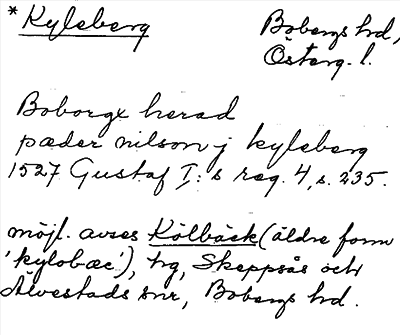 *Kyleberg
Bobergs hd,
Österg. l.
Boborgx herad
pæder nilson j kyleberg
1527 Gustaf I:s reg. 4, s. 235.
möjl. avses Kölbäck (äldre form
'kylobæc'), hg, Skeppsås och
Älvestads snr, Bobergs hd.